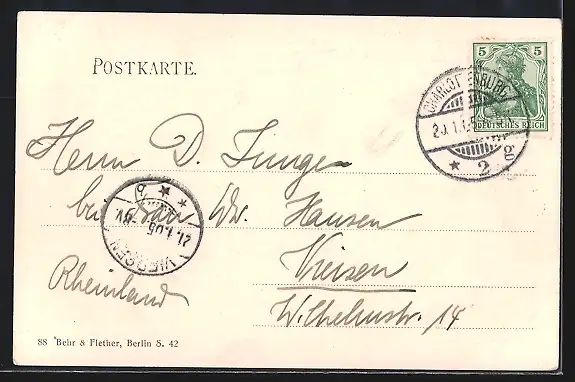 POSTKARTE.
5 5
DEUTSCHES REICH
CHARLOTTENBURG
2 g
Herrn D. Junge
bei Frau Ww. Hansen
Viersen
Rheinland
Wilhelmstr. 14
VIERSEN
21.1.05
b
88 Behr & Flether, Berlin S. 42